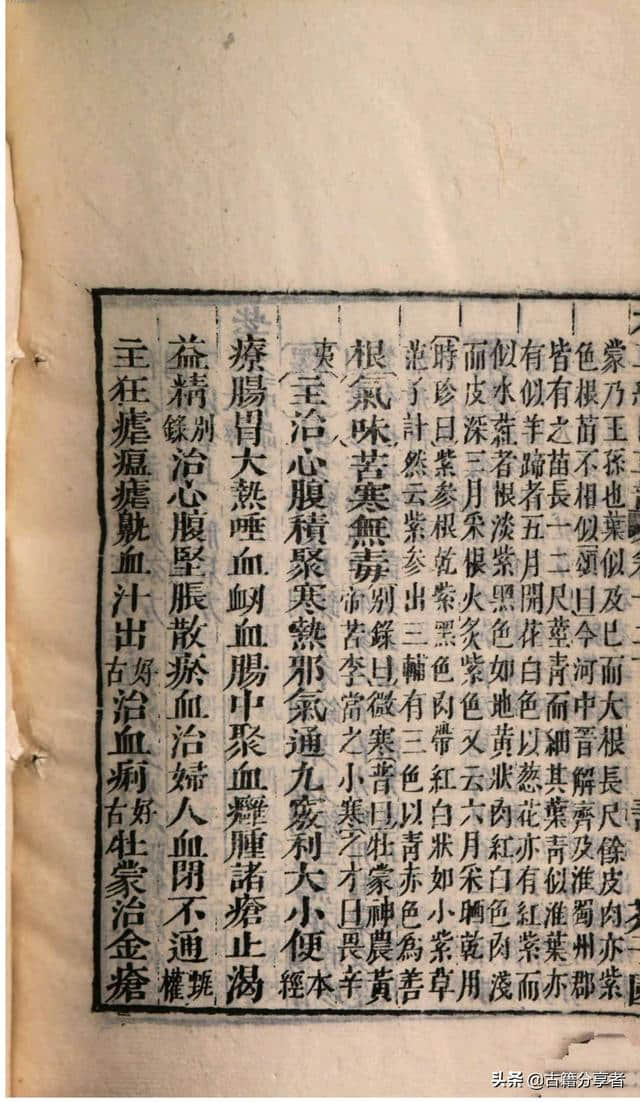 蒙乃王孫也葉似及巳而大根長尺餘皮肉亦紫
色根苗不相似頌曰今河中晉解齊及淮蜀州郡
皆有之苗長一二尺莖青而細其葉青似淮葉亦
有似羊蹄者五月開花白色以葱花亦有紅紫而
似水葒者根淡紫黑色如地黃狀肉紅白色肉淺
而皮深三月采根火炙紫色又云六月采晒乾用
時珍曰紫參根乾紫黑色肉帶紅白狀如小紫草
范子計然云紫參出三輔有三色以青赤色為善
根氣味苦寒無毒別錄曰微寒普曰牡蒙神農黃帝苦李當之小寒之才曰畏辛
夷主治心腹積聚寒熱邪氣通九竅利大小便本經
療腸胃大熱唾血衂血腸中聚血癰腫諸瘡止渴
益精別錄治心腹堅脹散瘀血治婦人血閉不通甄權
主狂瘧瘟瘧鼽血汁出好古治血痢好古牡蒙治金瘡
头条 @古籍分享者